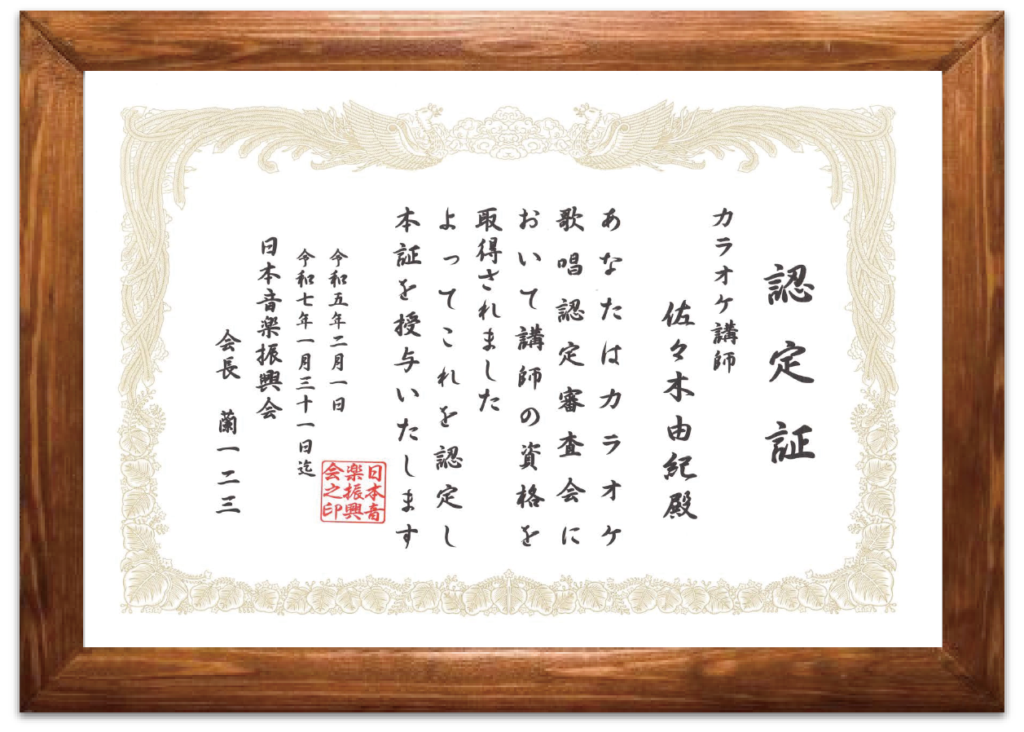 認定証
カラオケ講師
佐々木由紀殿
あなたはカラオケ
歌唱認定審査会に
おいて講師の資格を
取得されました
よってこれを認定し
本証を授与いたします
令和五年二月一日
令和七年一月三十一日迄
日本音楽振興会
会長 菌一二三
日本音
楽振興
会之印